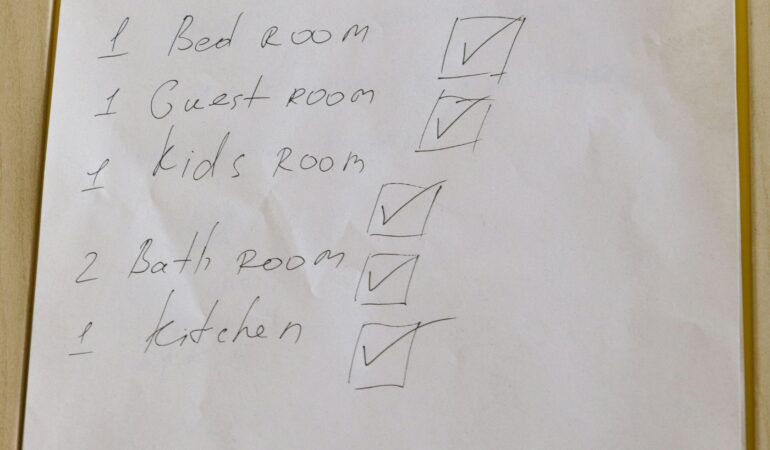 1 Bed ROOM ☑
1 Guest ROOM ☑
1 Kids ROOM ☑
2 Bath ROOM ☑
1 kitchen ☑